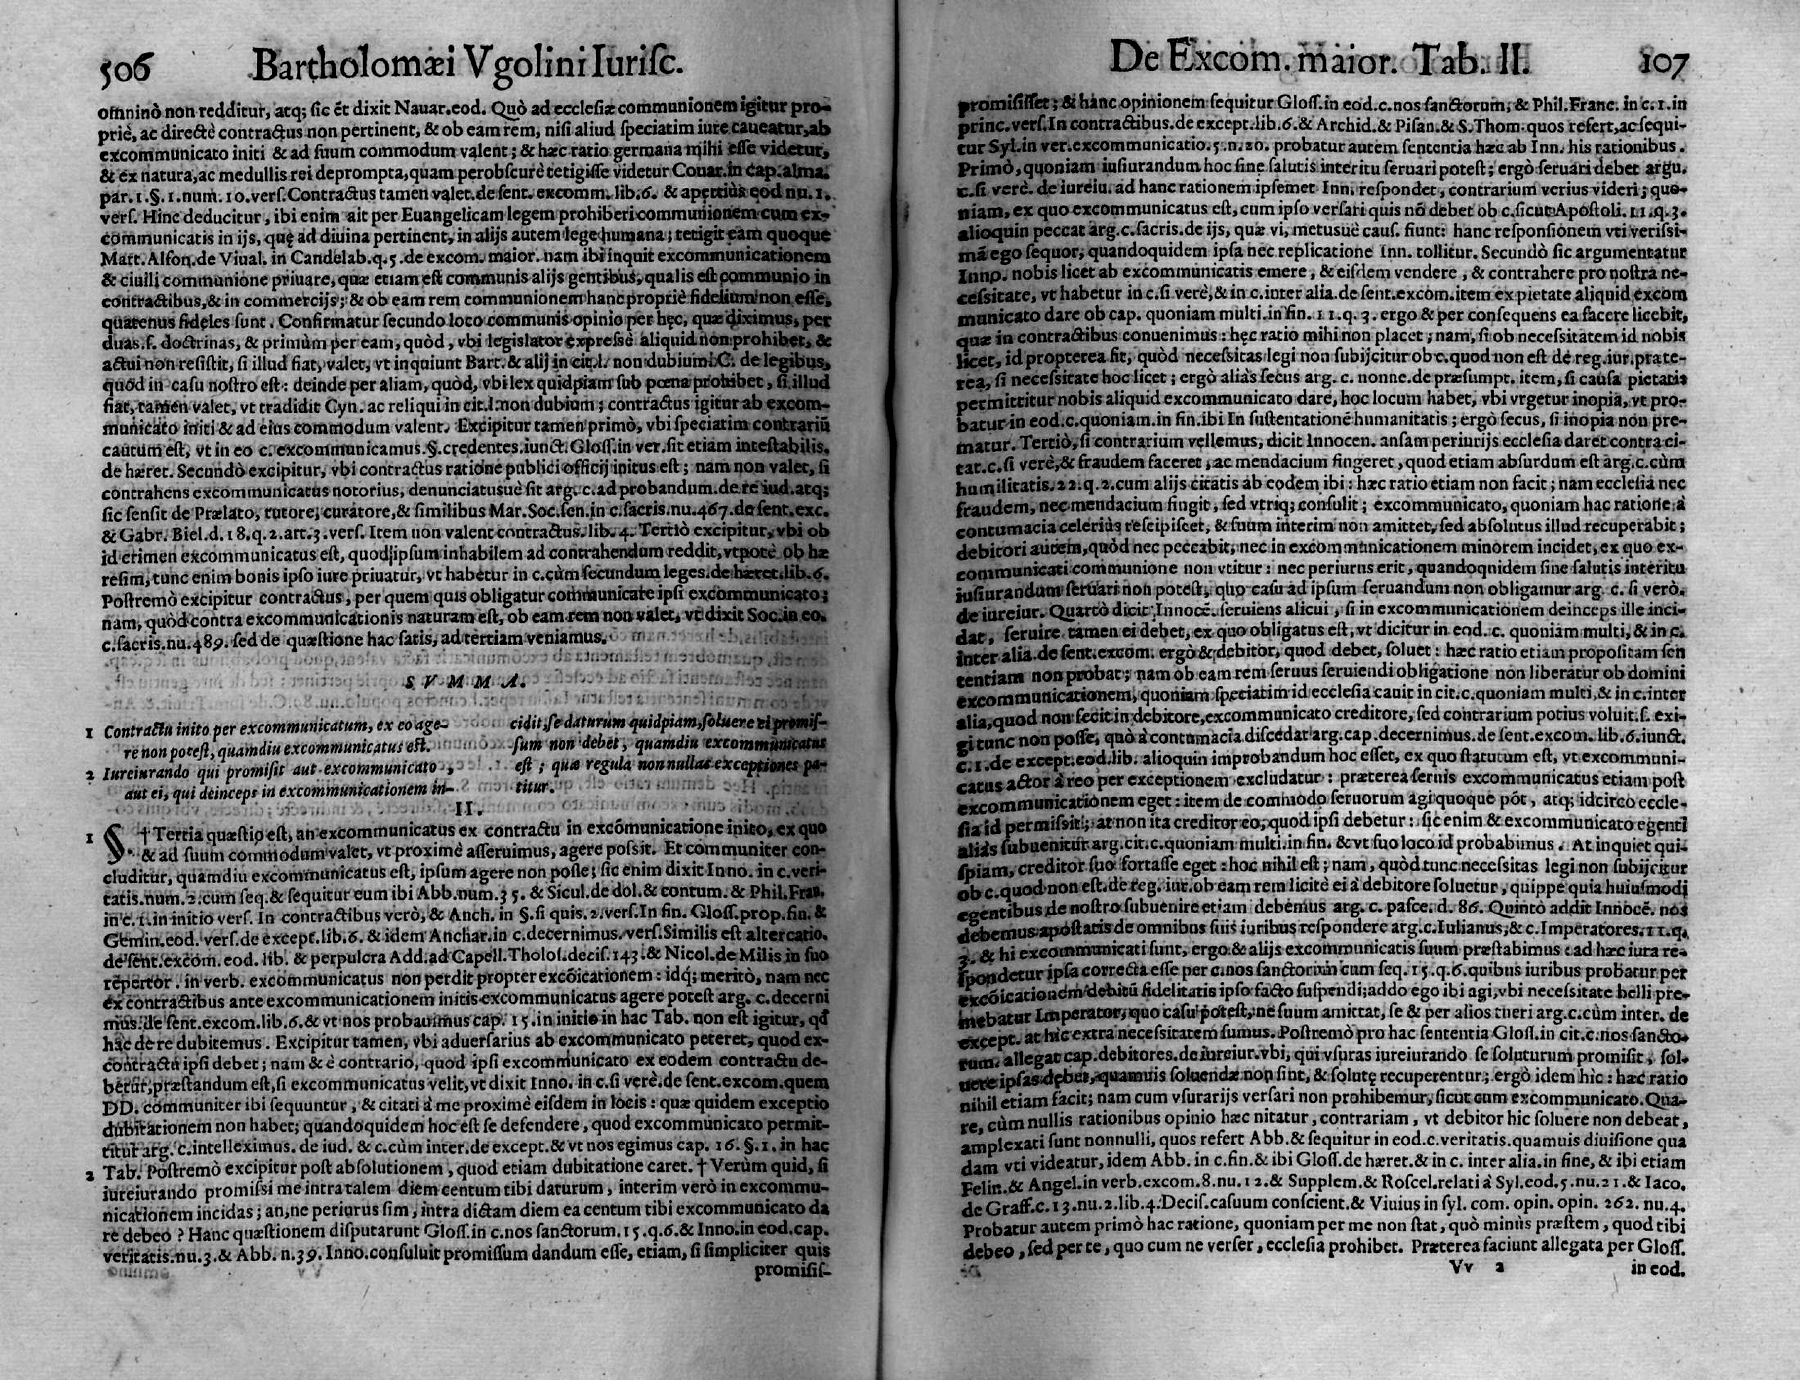 506 Bartholomæi Vgolini Iurisc.
omninò non redditur, atq; sic ét dixit Nauar. eod. Quò ad ecclesiæ communionem igitur pro-
priè, ac directè contractus non pertinent, & ob eam rem, nisi aliud speciatim iure caueatur, ab
excommunicato initi & ad suum commodum valent; & hæc ratio germana mihi esse videtur,
& ex natura, ac medullis rei deprompta, quam perobscurè tetigisse videtur Couar. in cap. alma.
par. 1. §. 1. num. 10. vers. Contractus tamen valet. de sent. excomm. lib. 6. & apertiùs eod nu. 1.
vers. Hinc deducitur, ibi enim ait per Euangelicam legem prohiberi communionem cum ex-
communicatis in ijs, quę ad diuina pertinent, in alijs autem lege humana; tetigit eam quoque
Matt. Alfon. de Viual. in Candelab. q. 5. de excom. maior. nam ibi inquit excommunicationem
& ciuili communione priuare, quæ etiam est communis alijs gentibus, qualis est communio in
contractibus, & in commercijs; & ob eam rem communionem hanc propriè fidelium non esse,
quatenus fideles sunt. Confirmatur secundo loco communis opinio per hęc, quæ diximus, per
duas. s. doctrinas, & primùm per eam, quòd, vbi legislator expressè aliquid non prohibet, &
actui non resistit, si illud fiat, valet, vt inquiunt Bart. & alij in cit. l. non dubium. C. de legibus,
quod in casu nostro est: deinde per aliam, quòd, vbi lex quidpiam sub pœna prohibet, si illud
fiat, tamen valet, vt tradidit Cyn. ac reliqui in cit. l. non dubium; contractus igitur ab excom-
municato initi & ad eius commodum valent. Excipitur tamen primò, vbi speciatim contrariũ
cautum est, vt in eo c. excommunicamus. §. credentes. iunct. Gloss. in ver. sit etiam intestabilis.
de hæret. Secundò excipitur, vbi contractus ratione publici officij initus est; nam non valet, si
contrahens excommunicatus notorius, denunciatusuè sit arg. c. ad probandum. de re iud. atq;
sic sensit de Prælato, tutore, curatore, & similibus Mar. Soc. sen. in c. sacris. nu. 467. de sent. exc.
& Gabr. Biel. d. 18. q. 2. art. 3. vers. Item non valent contractus. lib. 4. Tertiò excipitur, vbi ob
id crimen excommunicatus est, quod ipsum inhabilem ad contrahendum reddit, vt potè ob hæ
resim, tunc enim bonis ipso iure priuatur, vt habetur in c. cùm secundum leges. de hæret. lib. 6.
Postremò excipitur contractus, per quem quis obligatur communicare ipsi excommunicato;
nam, quòd contra excommunicationis naturam est, ob eam rem non valet, vt dixit Soc. in eo.
c. sacris. nu. 489. sed de quæstione hac satis, ad tertiam veniamus.
SVMMA.
1 Contractu inito per excommunicatum, ex eo age-
re non potest, quamdiu excommunicatus est.
2 Iureiurando qui promisit aut excommunicato,
aut ei, qui deinceps in excommunicationem in-
cidit, se daturum quidpiam, soluere ei promis-
sum non debet, quamdiu excommunicatus
est; quæ regula nonnullas exceptiones pa-
titur.
II.
1 §. † Tertia quæstio est, an excommunicatus ex contractu in excõmunicatione inito, ex quo
& ad suum commodum valet, vt proximè asseruimus, agere possit. Et communiter con-
cluditur, quamdiu excommunicatus est, ipsum agere non posse; sic enim dixit Inno. in c. veri-
tatis. num. 2. cum seq. & sequitur eum ibi Abb. num. 35. & Sicul. de dol. & contum. & Phil. Fran.
in c. 1. in initio vers. In contractibus verò, & Anch. in §. si quis. 2. vers. In fin. Gloss. prop. fin. &
Gemin. eod. vers. de except. lib. 6. & idem Anchar. in c. decernimus. vers. Similis est altercatio.
de sent. excom. eod. lib. & perpulcra Add. ad Capell. Tholos. decis. 143. & Nicol. de Milis in suo
repertor. in verb. excommunicatus non perdit propter excõicationem: idq; meritò, nam nec
ex contractibus ante excommunicationem initis excommunicatus agere potest arg. c. decerni
mus. de sent. excom. lib. 6. & vt nos probauimus cap. 15. in initio in hac Tab. non est igitur, qđ
hac de re dubitemus. Excipitur tamen, vbi aduersarius ab excommunicato peteret, quod ex-
contractu ipsi debet; nam & è contrario, quod ipsi excommunicato ex eodem contractu de-
betur, præstandum est, si excommunicatus velit, vt dixit Inno. in c. si verè. de sent. excom. quem
DD. communiter ibi sequuntur, & citati à me proximè eisdem in locis: quæ quidem exceptio
dubitationem non habet; quandoquidem hoc est se defendere, quod excommunicato permit-
titur arg. c. intelleximus. de iud. & c. cùm inter. de except. & vt nos egimus cap. 16. §. 1. in hac
2 Tab. Postremò excipitur post absolutionem, quod etiam dubitatione caret. † Verùm quid, si
iureiurando promisi me intra talem diem centum tibi daturum, interim verò in excommu-
nicationem incidas; an, ne periurus sim, intra dictam diem ea centum tibi excommunicato da
re debeo? Hanc quæstionem disputarunt Gloss. in c. nos sanctorum. 15. q. 6. & Inno. in eod. cap.
veritatis. nu. 3. & Abb. n. 39. Inno. consuluit promissum dandum esse, etiam, si simpliciter quis
promisis-
De Excom. maior. Tab. II. 107
promisisset; & hanc opinionem sequitur Gloss. in eod. c. nos sanctorum; & Phil. Franc. in c. 1. in
princ. vers. In contractibus. de except. lib. 6. & Archid. & Pisan. & S. Thom. quos refert, ac sequi-
tur Syl. in ver. excommunicatio. 5. n. 20. probatur autem sententia hæc ab Inn. his rationibus.
Primò, quoniam iusiurandum hoc sine salutis interitu seruari potest; ergò seruari debet argu.
c. si verè. de iureiu. ad hanc rationem ipsemet Inn. respondet, contrarium verius videri; quo-
niam, ex quo excommunicatus est, cum ipso versari quis nõ debet ob c. sicut Apostoli. 11. q. 3.
alioquin peccat arg. c. sacris. de ijs, quæ vi, metusuè caus. fiunt: hanc responsionem vti verissi-
mã ego sequor, quandoquidem ipsa nec replicatione Inn. tollitur. Secundò sic argumentatur
Inno. nobis licet ab excommunicatis emere, & eisdem vendere, & contrahere pro nostra ne-
cessitate, vt habetur in c. si verè, & in c. inter alia. de sent. excõm. item ex pietate aliquid excom
municato dare ob cap. quoniam multi. in fin. 11. q. 3. ergo & per consequens ea facere licebit,
quæ in contractibus conuenimus: hęc ratio mihi non placet; nam, si ob necessitatem id nobis
licet, id propterea fit, quòd necessitas legi non subijcitur ob c. quod non est de reg. iur. præte-
rea, si necessitate hoc licet; ergò aliàs secus arg. c. nonne. de præsumpt. item, si causa pietatis
permittitur nobis aliquid excommunicato dare, hoc locum habet, vbi vrgetur inopia, vt pro-
batur in eod. c. quoniam. in fin. ibi In sustentationē humanitatis; ergò secus, si inopia non pre-
matur. Tertiò, si contrarium vellemus, dicit Innocen. ansam periurijs ecclesia daret contra ci-
tat. c. si verè, & fraudem faceret, ac mendacium fingeret, quod etiam absurdum est arg. c. cùm
humilitatis. 22. q. 2. cum alijs citatis ab eodem ibi: hæc ratio etiam non facit; nam ecclesia nec
fraudem, nec mendacium fingit, sed vtriq; consulit; excommunicato, quoniam hac ratione à
contumacia celeriùs resipiscet, & suum interim non amittet, sed absolutus illud recuperabit;
debitori autem, quòd nec peccabit, nec in excommunicationem minorem incidet, ex quo ex-
communicati communione non vtitur: nec periurus erit, quandoqnidem sine salutis interitu
iusiurandum seruari non potest, quo casu ad ipsum seruandum non obligamur arg. c. si verò.
de iureiur. Quartò dicit Innocē. seruiens alicui, si in excommunicationem deinceps ille inci-
dat, seruire tamen ei debet, ex quo obligatus est, vt dicitur in eod. c. quoniam multi, & in c.
inter alia. de sent. excom. ergò & debitor, quod debet, soluet: hæc ratio etiam propositam sen
tentiam non probat; nam ob eam rem seruus seruiendi obligatione non liberatur ob domini
excommunicationem, quoniam speciatim id ecclesia cauit in cit. c. quoniam multi, & in c. inter
alia, quod non fecit in debitore, excommunicato creditore, sed contrarium potius voluit. s. exi-
gi tunc non posse, quò à contumacia discedat arg. cap. decernimus. de sent. excom. lib. 6. iunct.
c. 1. de except. eod. lib. alioquin improbandum hoc esset, ex quo statutum est, vt excommuni-
catus actor à reo per exceptionem excludatur: præterea seruis excommunicatus etiam post
excommunicationem eget: item de commodo seruorum agi quoque põt, atq; idcirco eccle-
sia id permisit; at non ita creditor eo, quod ipsi debetur: sic enim & excommunicato egenti
aliàs subuenitur arg. cit. c. quoniam multi. in fin. & vt suo loco id probabimus. At inquiet qui-
spiam, creditor suo fortasse eget: hoc nihil est; nam, quòd tunc necessitas legi non subijcitur
ob c. quod non est. de reg. iur. ob eam rem licitè ei à debitore soluetur, quippe quia huiusmodi
egentibus de nostro subuenire etiam debemus arg. c. pasce. d. 86. Quintò addit Innocē. nos
debemus apostatis de omnibus suis iuribus respondere arg. c. Iulianus, & c. Imperatores. 11. q.
3. & hi excommunicati sunt, ergo & alijs excommunicatis suum præstabimus: ad hæc iura re-
spondetur ipsa correcta esse per c. nos sanctorum cum seq. 15. q. 6. quibus iuribus probatur per
excõicationem debitũ fidelitatis ipso facto suspendi; addo ego ibi agi, vbi necessitate belli pre-
mebatur Imperator, quo casu potest, ne suum amittat, se & per alios tueri arg. c. cùm inter. de
except. at hic extra necessitatem sumus. Postremò pro hac sententia Gloss. in cit. c. nos sancto-
rum. allegat cap. debitores. de iureiur. vbi, qui vsuras iureiurando se soluturum promisit, sol-
uere ipsas debet, quamuis soluendæ non sint, & solutę recuperentur; ergò idem hic: hæc ratio
nihil etiam facit; nam cum vsurarijs versari non prohibemur, sicut cum excommunicato. Qua-
re, cùm nullis rationibus opinio hæc nitatur, contrariam, vt debitor hic soluere non debeat,
amplexati sunt nonnulli, quos refert Abb. & sequitur in eod. c. veritatis. quamuis diuisione qua
dam vti videatur, idem Abb. in c. fin. & ibi Gloss. de hæret. & in c. inter alia. in fine, & ibi etiam
Felin. & Angel. in verb. excom. 8. nu. 12. & Supplem. & Roscel. relati à Syl. eod. 5. nu. 21. & Iaco.
de Graff. c. 13. nu. 2. lib. 4. Decis. casuum conscient. & Viuius in syl. com. opin. opin. 262. nu. 4.
Probatur autem primò hac ratione, quoniam per me non stat, quò minùs præstem, quod tibi
debeo, sed per te, quo cum ne verser, ecclesia prohibet. Præterea faciunt allegata per Gloss.
Vv 2 in eod.